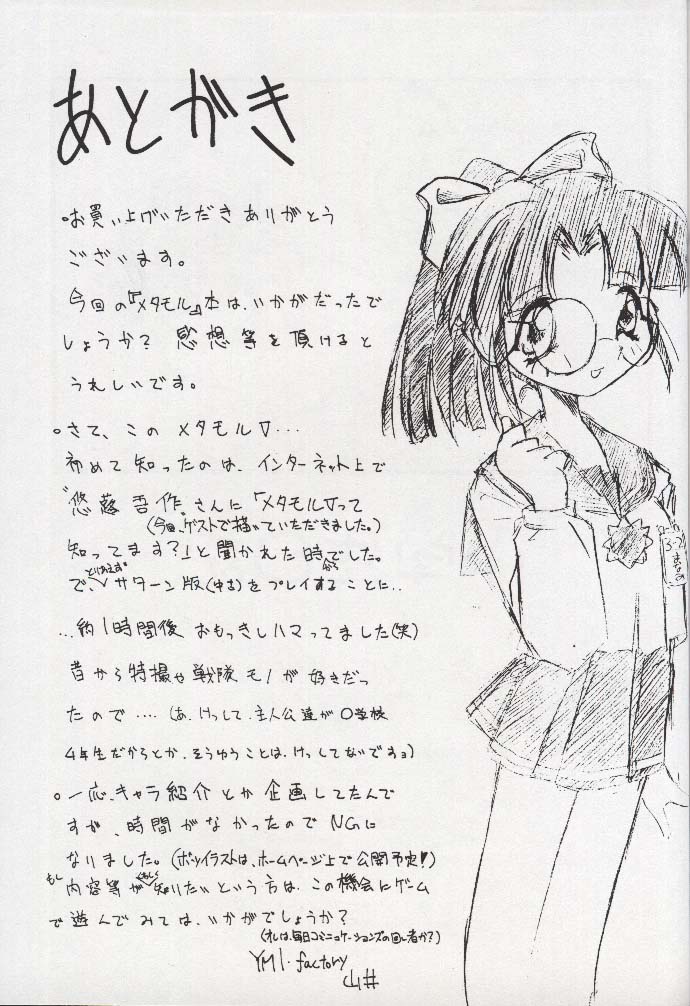 あとがき
・お買い上げいただきありがとう
ございます。
今回の『メタモル』本は、いかがだったで
しょうか? 感想等を頂けると
うれしいです。
○さて、このメタモル▽…
初めて知ったのは、インターネット上で
悠藤吾作さんに「メタモル▽って
(今回、ゲストで描いていただきました。)
知ってます?」と聞かれた時からでした。
で、とりあえずサターン版(中古)をプレイすることに..
…約1時間後 おもっきしハマってました(笑)
昔から特撮や戦隊モノが好きだっ
たので‥‥(あ、けっして、主人公達が○学校
4年生だからとか、そうゆうことは、けっしてないですョ)
○一応、キャラ紹介とか企画してたんで
すが、時間がなかったのでNGに
なりました。(ボツイラストは、ホームページ上で公開予定♥)
もし内容等がくわしく知りたいという方は、この機会にゲーム
で遊んでみては、いかがでしょうか?
(オレは、毎日コミュニケーションズの回し者か?)
YMI・factory